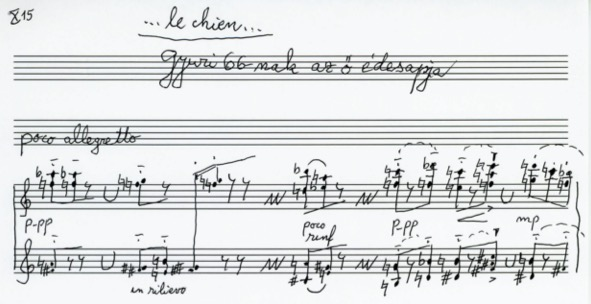 815
...le chien...
Gyuri 66-nak az ő édesapja
poco allegretto
p-pp
poco
rinf
p-pp
mp
in rilievo